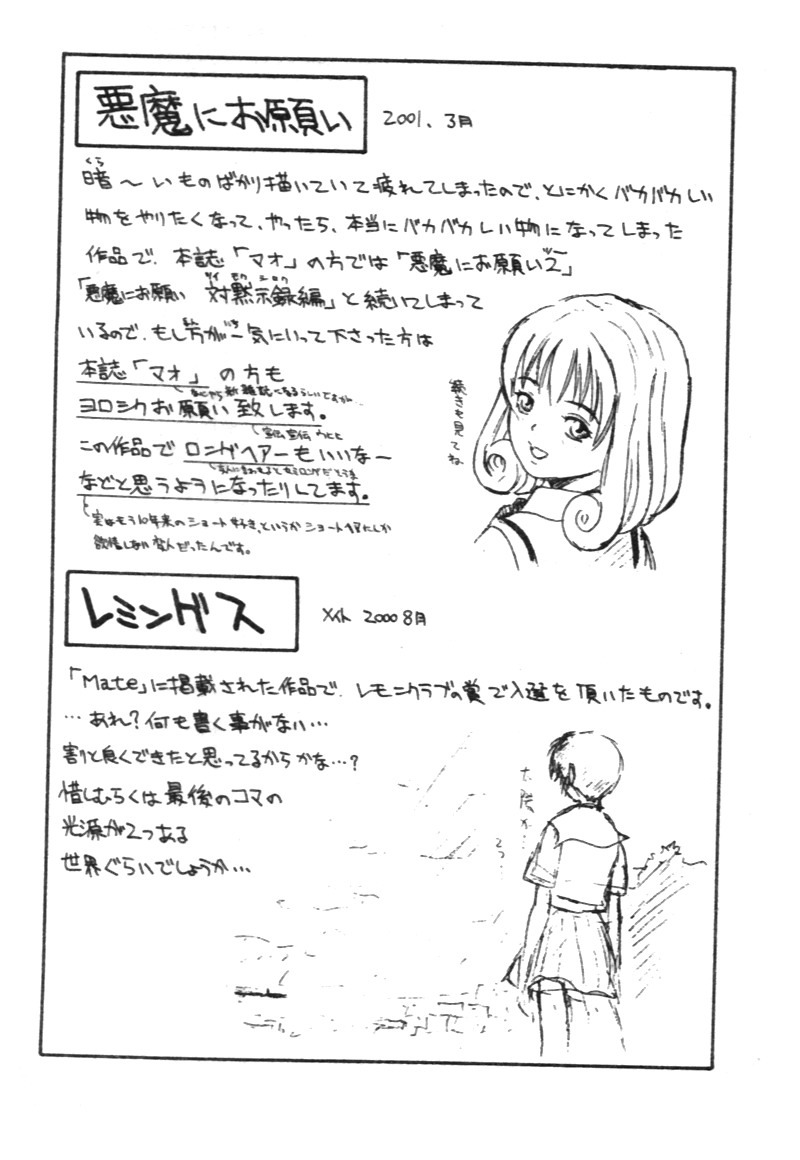 悪魔にお願い
2001. 3月
くら
暗～いものばかり描いていて疲れてしまったので、とにかくバカバカしい
物をやりたくなって、やったら、本当にバカバカしい物になってしまった
作品で、本誌「マオ」の方では「悪魔にお願い2」
「悪魔にお願い 対黙示録編」と続いてしまって
いるので、もし方が一気にいって下さった方は
本誌「マオ」の方も
ヨロシクお願い致します。
この作品でロングヘアーもいいな～
などと思うようになったりしてます。
実はもう10年来のショート好き、というかショート
んだったんです。
続きも見てね
レミングス
メイト 2000 8月
「Mate」に掲載された作品で、レモンクラブの賞で入選を頂いたものです。
…あれ？何も書く事がない…
割と良くできたと思ってるからかな…？
惜しむらくは最後のコマの
光源が2つある
世界ぐらいでしょうか…
太陽が…
2つ…